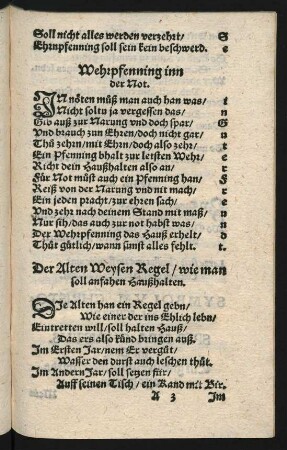 Soll nicht alles werden verzehrt/ S
Ehrnpfenning soll sein kein beschwerd. e
Wehrpfenning inn
der Not.
IN nöten müß man auch han was/ i
Nicht soltu ja vergessen das/ n
Gib auß zur Narung vnd doch spar/ G
Vnd brauch zun Ehren/doch nicht gar/ u
Thü zehrn/mit Ehrn/doch also zehr/ n
Ein Pfenning bhalt zur letsten Wehr/ t
Richt dein Haußhalten also an/ e
Für Not müst auch ein Pfenning han/ r
Reiß von der Narung vnd nit mach/
Ein jeden pracht/zur ehren sach/
Vnd zehr nach deinem Stand mit maß/
Nur sih/das auch zur not habst was/
Der Wehrpfenning das Hauß erhelt/
Thüt gütlich/wann sunst alles fehlt.
Der Alten Weysen Regel/wie man
soll anfahen Haußhalten.
DIe Alten han ein Regel gebn/
Wie einer der ins Ehlich lebn/
Eintretten will/soll halten Hauß/
Das ers also künd bringen auß.
Im Ersten Jar/nem Er vergüt/
Wasser den durst auch leschen thüt.
Im Andern Jar/soll setzen für/
Auff seinen Tisch/ein Kand mit Bir.
A 3 Im